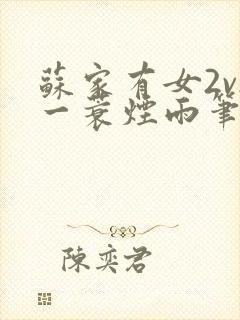 蘇家有女2v
一蓑煙雨筆
陳奕君